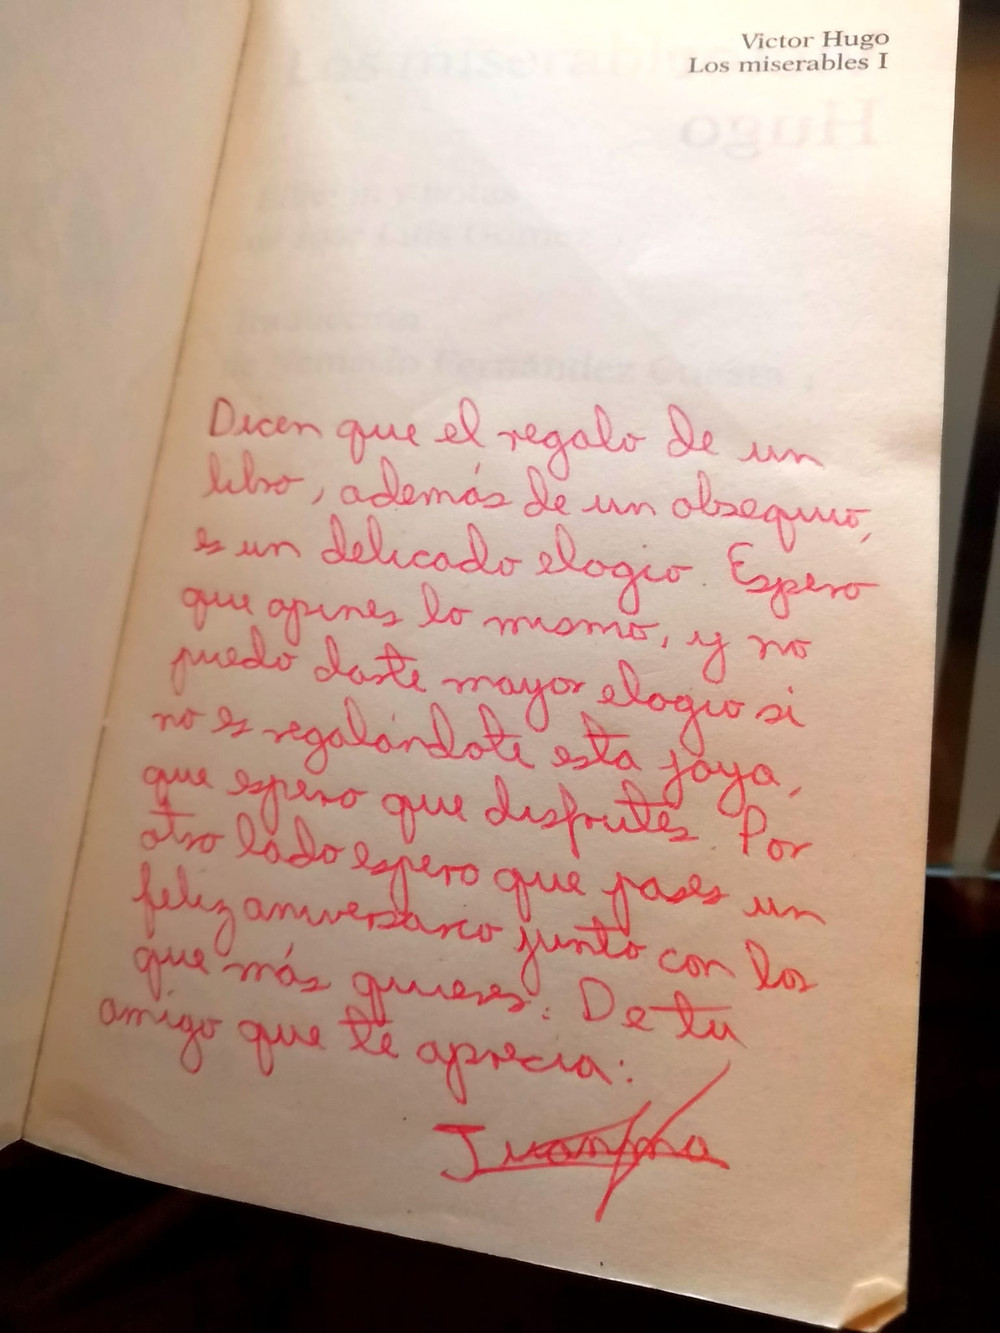 Victor Hugo
Los miserables I
Dicen que el regalo de un
libro, además de un obsequio,
es un delicado elogio. Espero
que opines lo mismo, y no
puedo darte mayor elogio si
no es regalándote esta joya,
que espero que disfrutes. Por
otro lado espero que pases un
feliz aniversario junto con los
que más quieres. De tu
amigo que te aprecia: